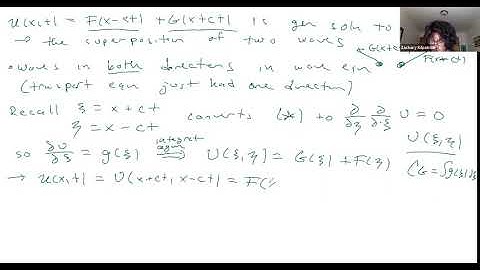 u(x,t) = F(x-ct) + G(x+ct) is gen soln to
→ the superposition of two waves
G(x+ct) F(x-ct)
•waves in both directions in wave eqn
(transport eqn just had one direction)
Recall ξ = x+ct converts (*) to ∂/∂η ∂/∂ξ U = 0
η = x-ct
U(ξ,η)
so ∂U/∂ξ = g(ξ) integrate again ⟹ U(ξ,η) = G(ξ) + F(η)
(G = ∫g(ξ)dξ
→ u(x,t) = U(x+ct, x-ct) = F(x